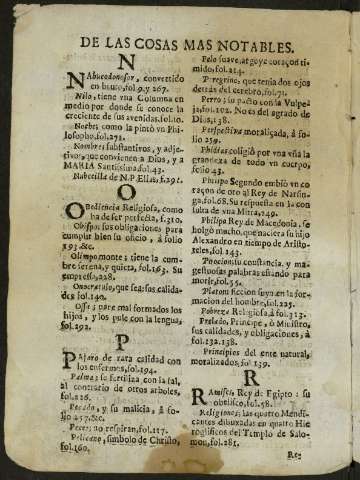 DE LAS COSAS MAS NOTABLES.
N
NAbucodonosor, convertido
en bruto, fol. 9. y 267.
Nilo, tiene vna Columna en
medio por donde se conoce la
creciente de sus avenidas. fol. 10.
Noche; como la pintò vn Phi-
losopho. fol. 272.
Nombres substantivos, y adje-
tivos, que convienen à Dios, y a
MARIA Santissima. fol. 43.
Nubecilla de N. P. Elias. f. 291.
O
OBediencia Religiosa, como
ha de ser perfecta, f. 310.
Obispos; sus obligaciones para
cumplir bien su oficio, à folio
193. &c.
Olimpo monte; tiene la cum-
bre serena, y quieta, fol. 163. Su
empresa, 228.
Onocratalo, que sea: sus calida-
des fol. 140.
Osso; pare mal formados los
hijos, y los pule con la lengua,
fol. 292.
P
PAjaro de rara calidad con
los enfermos, fol. 194.
Palma; se fertiliza con la sal,
al contrario de otros arboles,
fol. 226.
Pecado, y su malicia, à fo-
lio 257. &c.
Peces; no respiran, fol. 117.
Pelicano, simbolo de Christo,
fol. 160.
Pelo suave, arguye coraçon ti-
mido, fol. 214.
Peregrino, que tenia dos ojos
detràs del cerebro, fol. 71.
Perro; su pacto con la Vulpe-
ja, fol. 102. No es del agrado de
Dios, 138.
Perspectiva moraliçada, à fo-
lio 250.
Phidias coligiò por vna vña la
grandeza de todo vn cuerpo,
folio 43.
Philipo Segundo embiò vn co
raçon de oro al Rey de Narsin-
ga, fol. 68. Su respuesta en la con
sulta de vna Mitra, 249.
Philipo Rey de Macedonia, se
holgò mucho, que naciera su hijo
Alexandro en tiempo de Aristo-
teles, fol. 143.
Phocion su constancia, y ma-
gestuosas palabras estando para
morir, fol. 55.
Platon: ficcion suya en la for-
macion del hombre, fol. 225.
Pobreza Religiosa, à fol. 313.
Prelado, Principe, ò Ministro,
sus calidades, y obligaciones, à
fol. 132. 138.
Principios del ente natural,
moralizados, fol. 139.
R
RAmises, Rey de Egipto: su
obelisco, fol. 58.
Religiones: las quatro Mendi-
cantes dibuxadas en quatro Hie
roglificos del Templo de Salo-
mon, fol. 281.